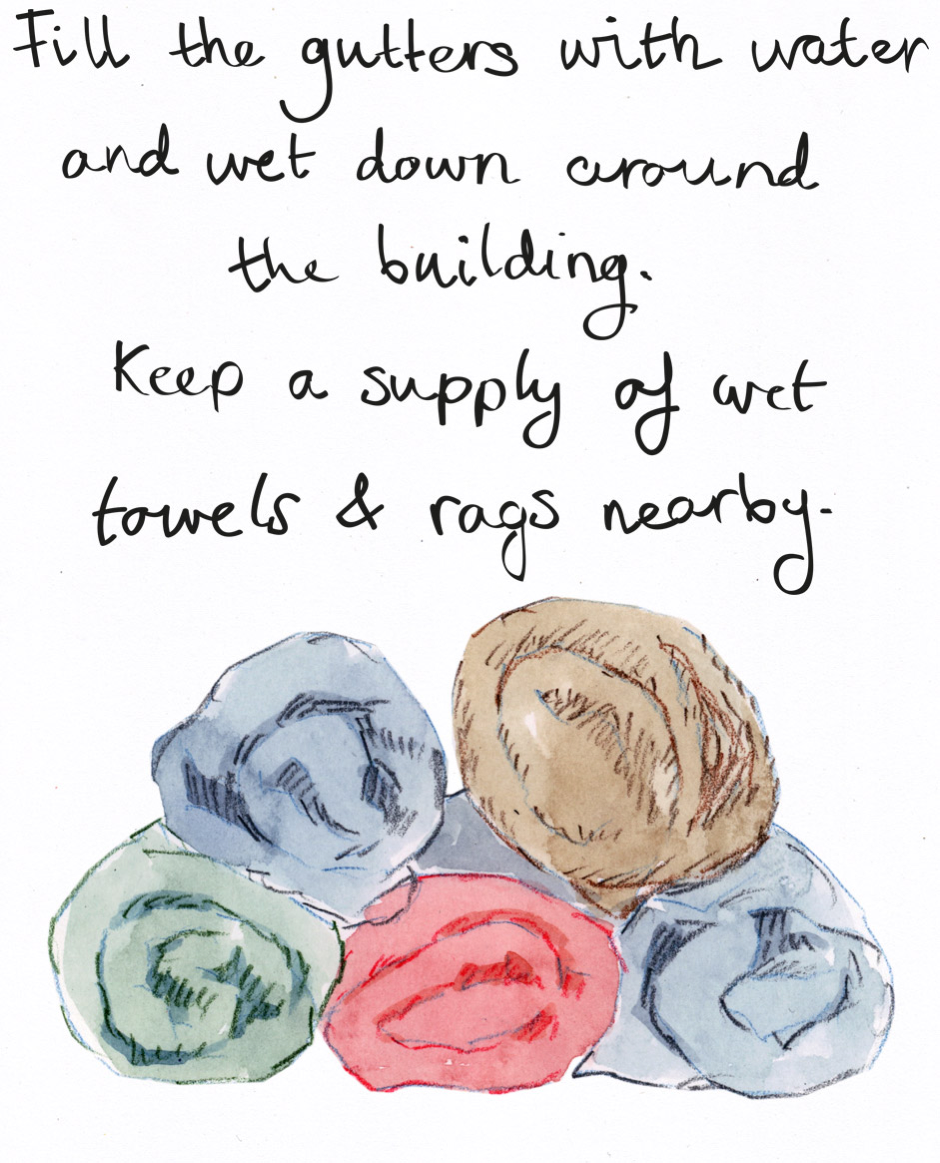 Fill the gutters with water
and wet down around
the building.
Keep a supply of wet
towels & rags nearby.